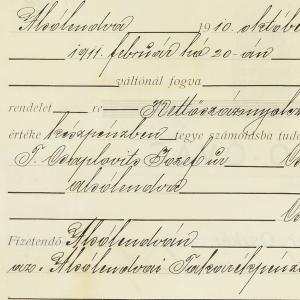 Alsólendva 1910. októbe
1911. február hó 20-án
váltónál fogva
rendelet re Kettőszáznyolcz
értéke készpénzben tegye számolásba tudó
T. Csaplovits József úr
alsólendva
Fizetendő Alsólendván
az. Alsólendvai Takarékpénz